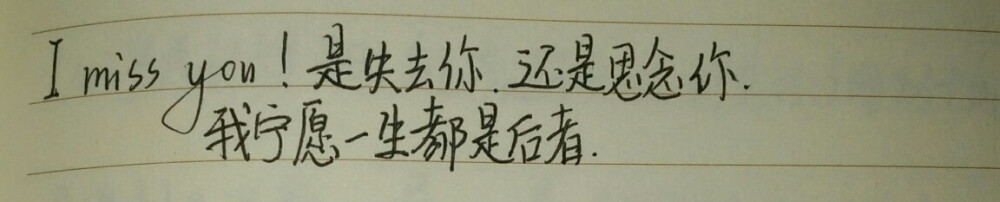 I miss you！是失去你.还是思念你.
我宁愿一生都是后者.